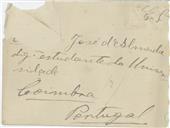 José d'Almeida
dig. estudante da Univer
sidade
Coimbra
Portugal